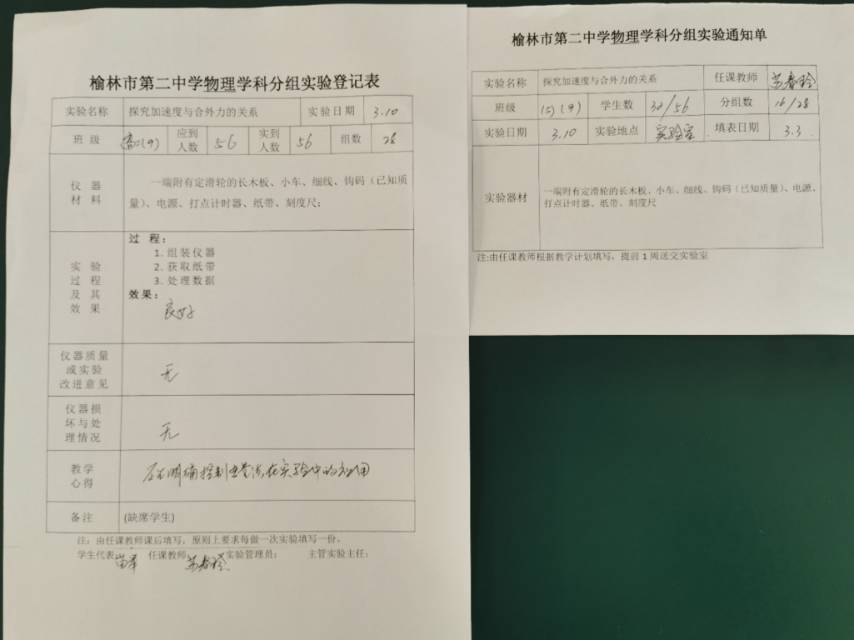 榆林市第二中学物理学科分组实验登记表
实验名称 探究加速度与合外力的关系 实验日期 3.10
班 级 (9) 应到人数 56 实到人数 56 组数 28
仪 器 材 料 一端附有定滑轮的长木板、小车、细线、钩码（已知质
量）、电源、打点计时器、纸带、刻度尺；
实 验 过 程 及 其 效 果
过 程：
1. 组装仪器
2. 获取纸带
3. 处理数据
效果：
良好
仪器质量
或实验
改进意见
无
仪器损
坏与处
理情况
无
教学
心得
明确控制变量法在实验中的应用
备注 (缺席学生)
注：由任课教师课后填写，原则上要求每做一次实验填写一份。
学生代表： 任课教师： 实验管理员： 主管实验主任：
榆林市第二中学物理学科分组实验通知单
实验名称 探究加速度与合外力的关系 任课教师
班级 (9) 学生数 /56 分组数 16/28
实验日期 3.10 实验地点 实验室 填表日期 3.3
实验器材 一端附有定滑轮的长木板、小车、细线、钩码（已知质量）、电源、
打点计时器、纸带、刻度尺
注:由任课教师根据教学计划填写，提前 1 周送交实验室